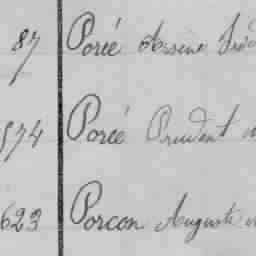 87 Porée Arsène
574 Porée Prudent
623 Porcon Auguste